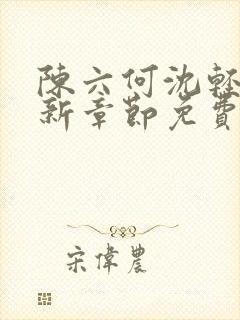 陳六何沈輕
新章節免費
宋偉農